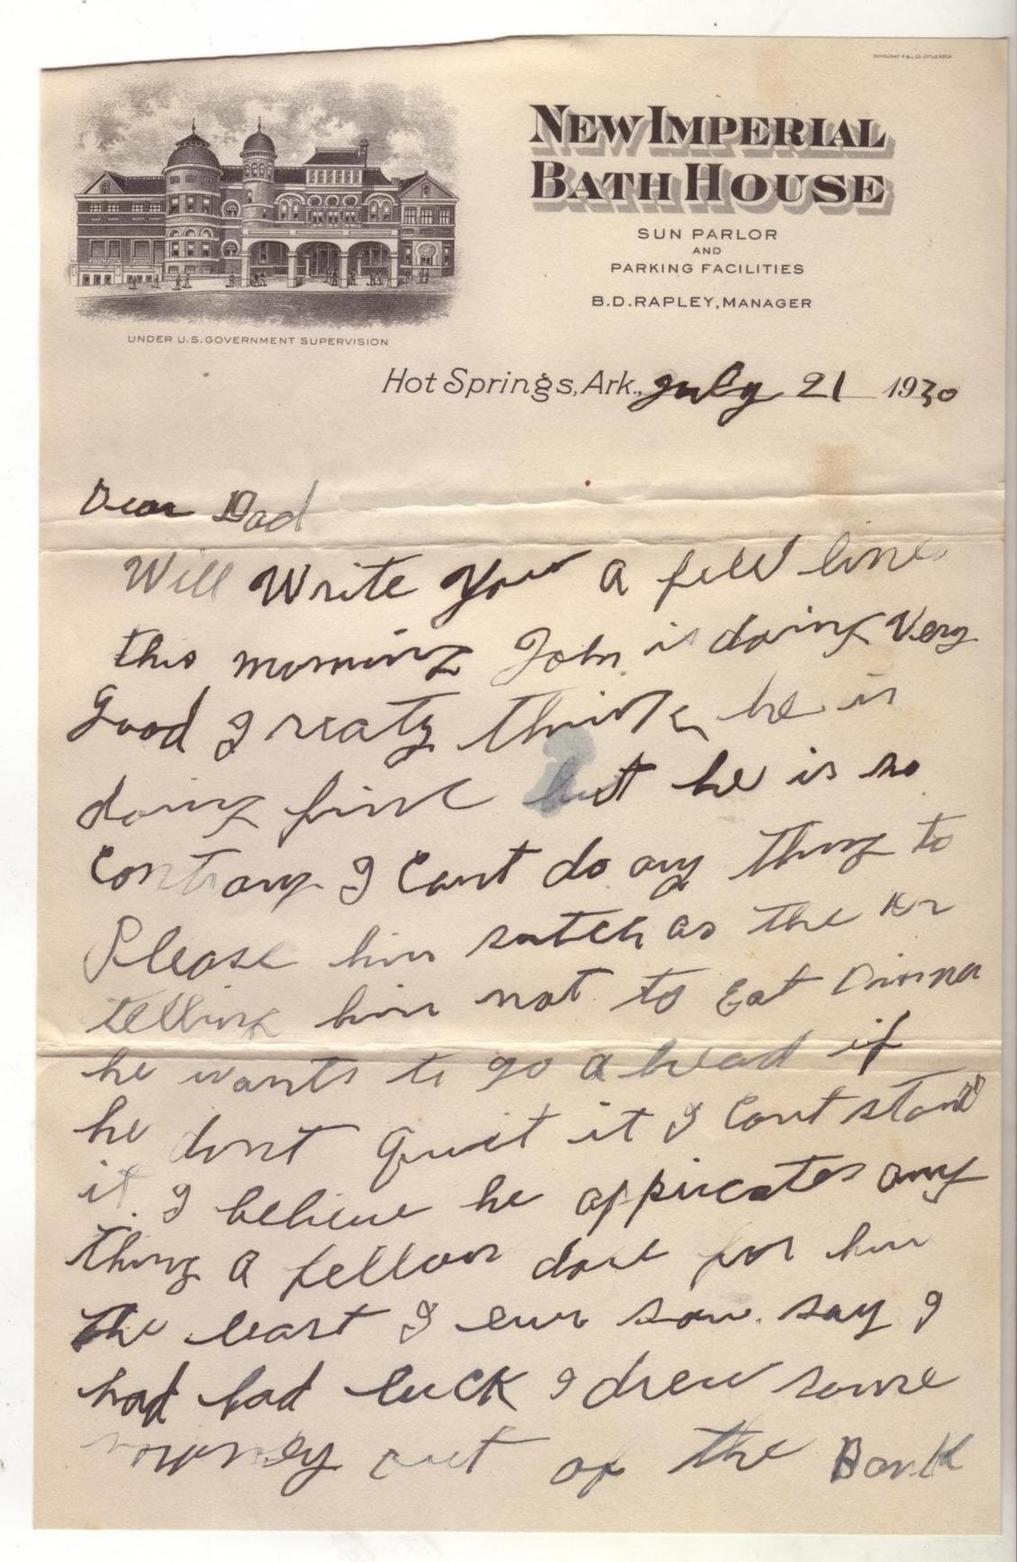 NEW IMPERIAL
BATH HOUSE
SUN PARLOR
AND
PARKING FACILITIES
B.D. RAPLEY, MANAGER
UNDER U.S. GOVERNMENT SUPERVISION
Hot Springs, Ark., July 21 1930
Dear Dad
Will Write You a few lines
this morning John is doing Very
Good I realy think he is
doing fine but he is so
Contrary I Cant do any thing to
Please him sutch as the Dr
telling him not to Eat Dinner
he wants to go a head if
he dont quit it I Cant stand
it. I believe he appricates any
thing a fellow dose for him
the least I ever saw. say I
had bad luck I drew some
money out of the Bank